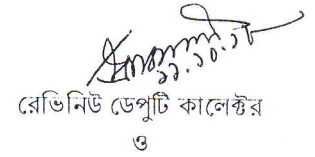 ২২.১০.১৮
রেভিনিউ ডেপুটি কালেক্টর
ও